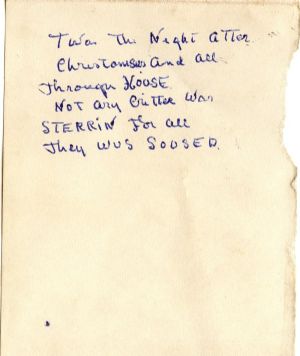 Twas The Night atter
Christomses and all
Through HOUSE
NOT Any Critter Was
STERRIN For all
They WUS SOUSED.